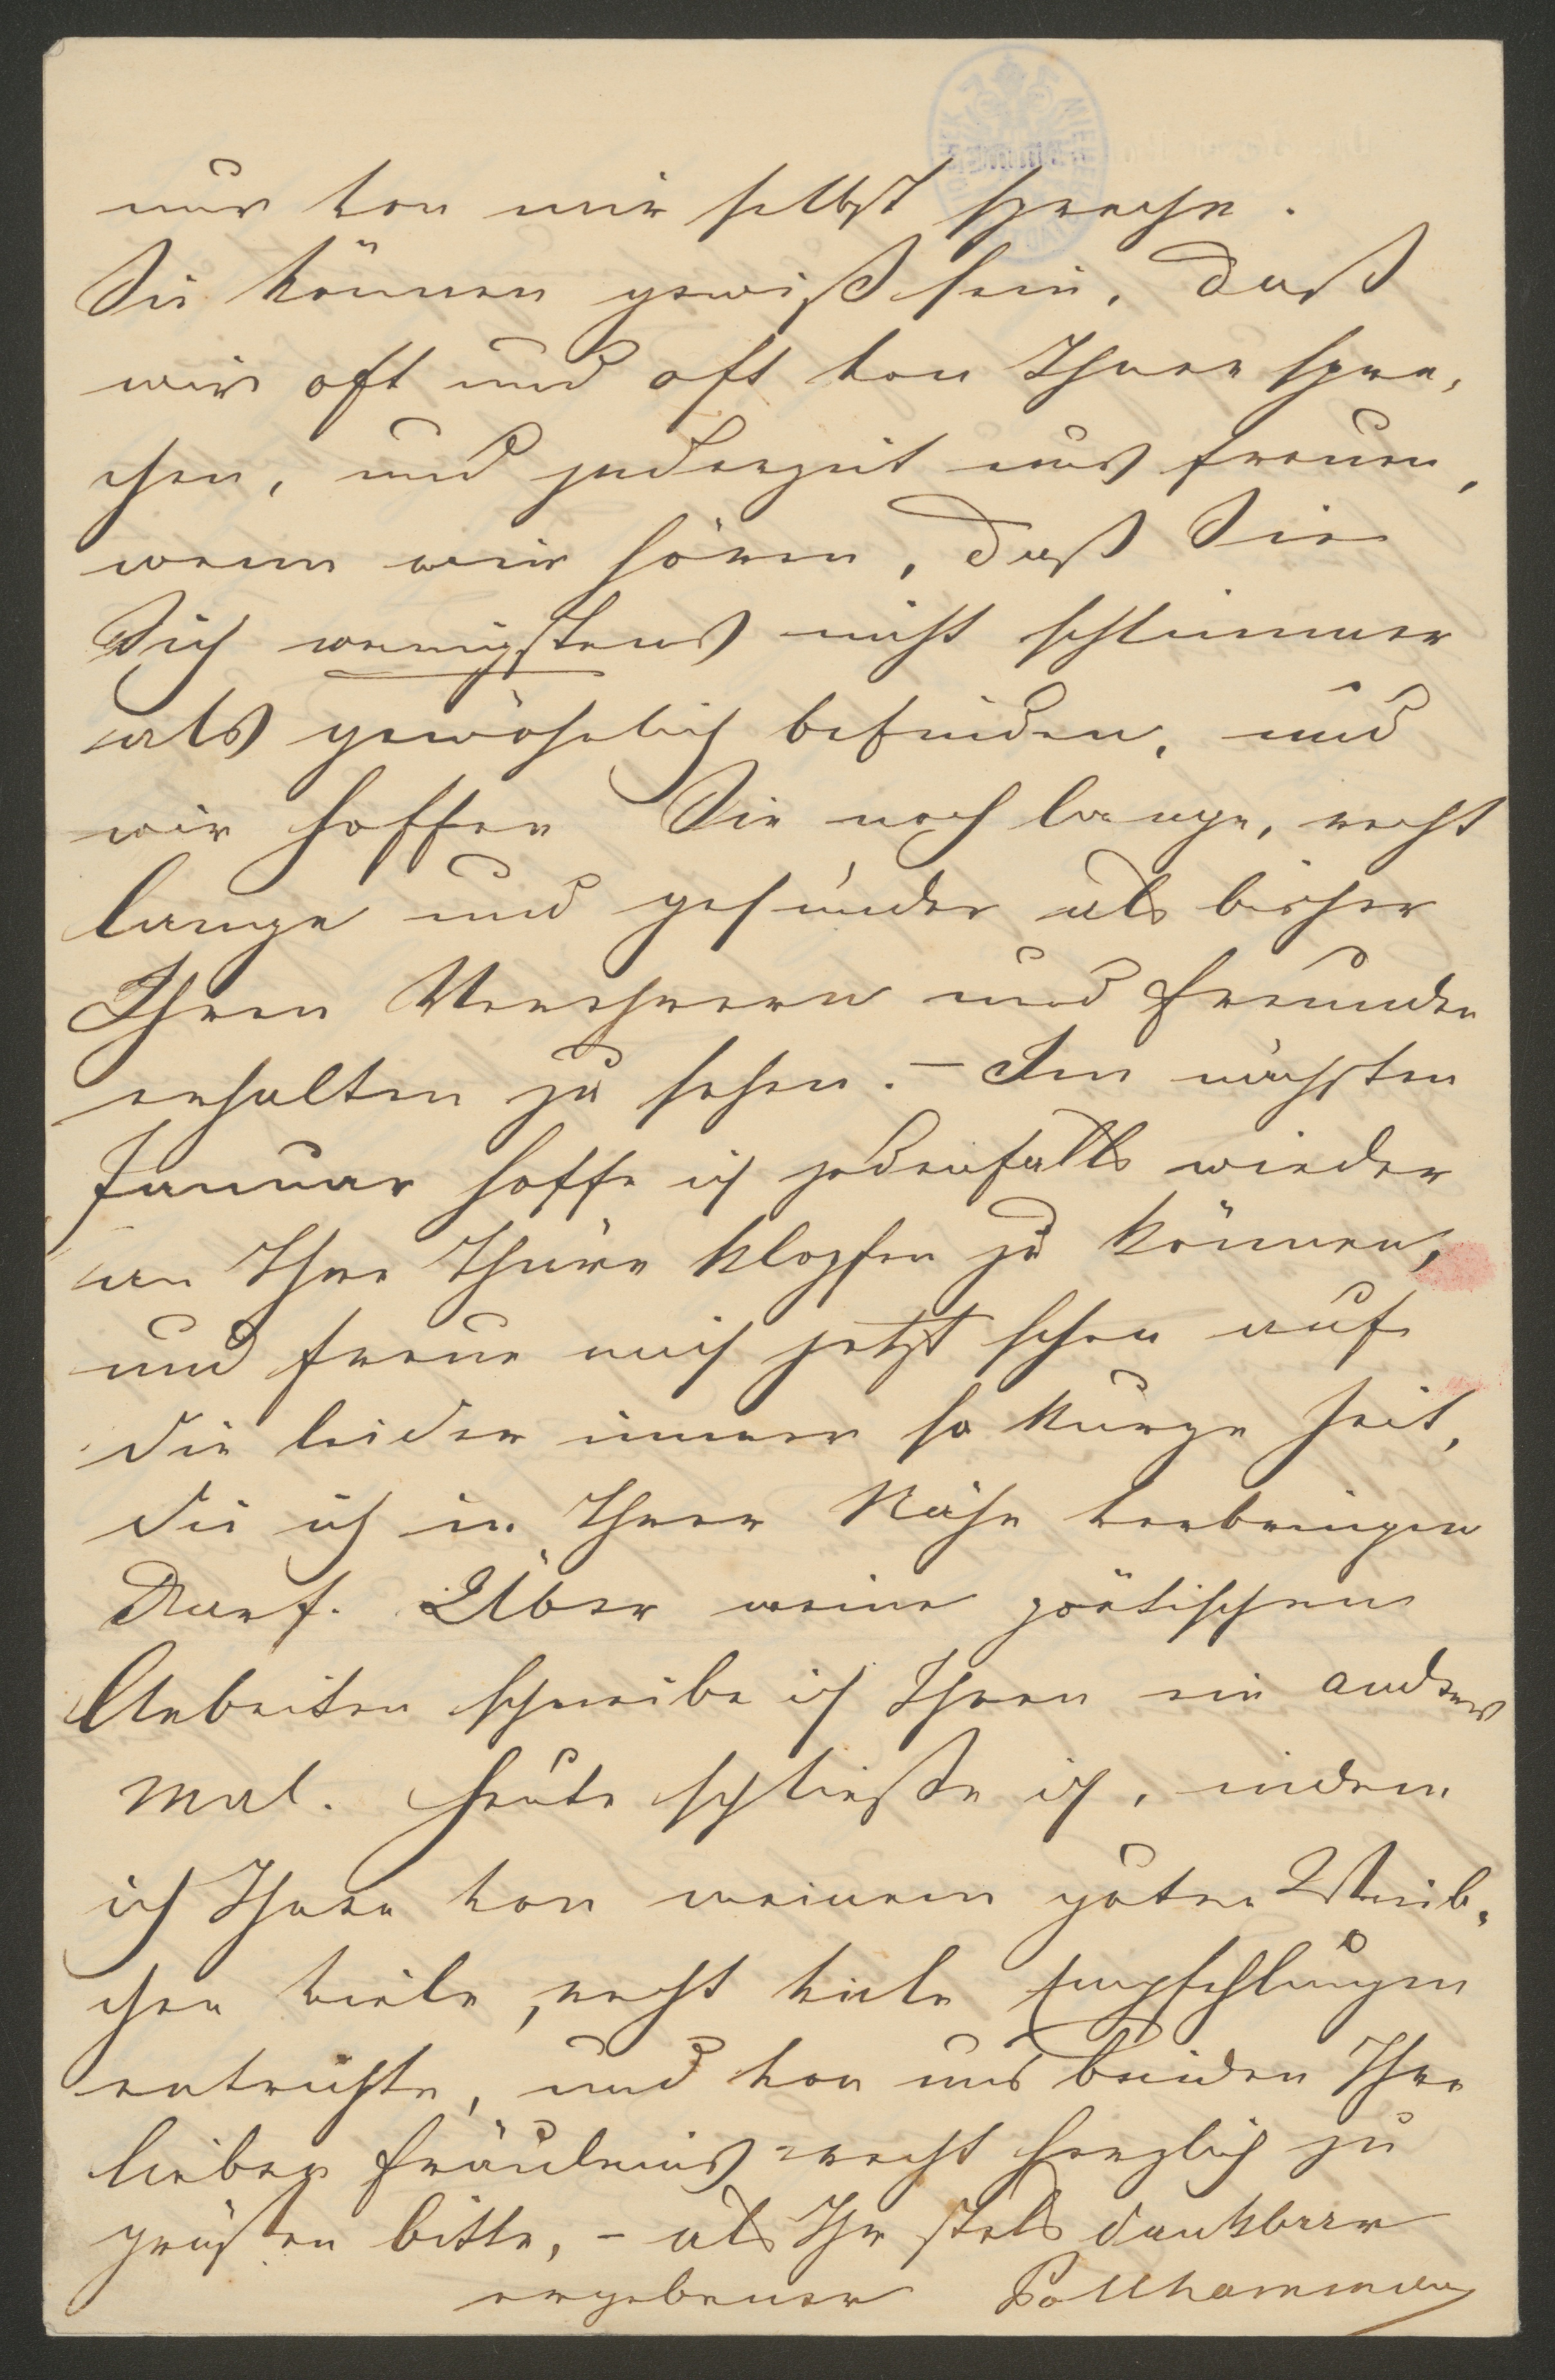 nur von mir selbst spreche.
Sie können gewiß sein, daß
wir oft und oft von Ihnen spre-
chen, und jederzeit uns freuen,
wenn wir hören, daß Sie
Sich wenigstens nicht schlimmer
als gewöhnlich befinden, und
wir hoffen Sie noch lange, recht
lange und gesünder als bisher
Ihren Verehrern und Freunden
erhalten zu sehen. – Im nächsten
Januar hoffe ich jedenfalls wieder
an Ihre Thüre klopfen zu können,
und freue mich jetzt schon auf
die leider immer so kurze Zeit,
die ich in Ihrer Nähe verbringen
darf. Über meine poëtischen
Arbeiten schreibe ich Ihnen ein anders
mal. Heute schließe ich, indem
ich Ihnen von meinem guten Weib-
chen viele, recht viele Empfehlungen
entrichte, und von uns beiden Ihre
lieben Fräuleins recht herzlich zu
grüßen bitte, – als Ihr stets dankbarer
ergebener Pöllhammer